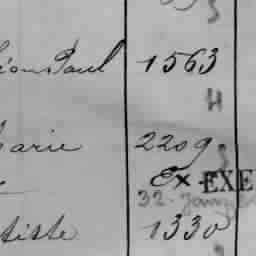 Léon Paul 1563
Marie 2209
Ex EXE
32-
tiste 1330